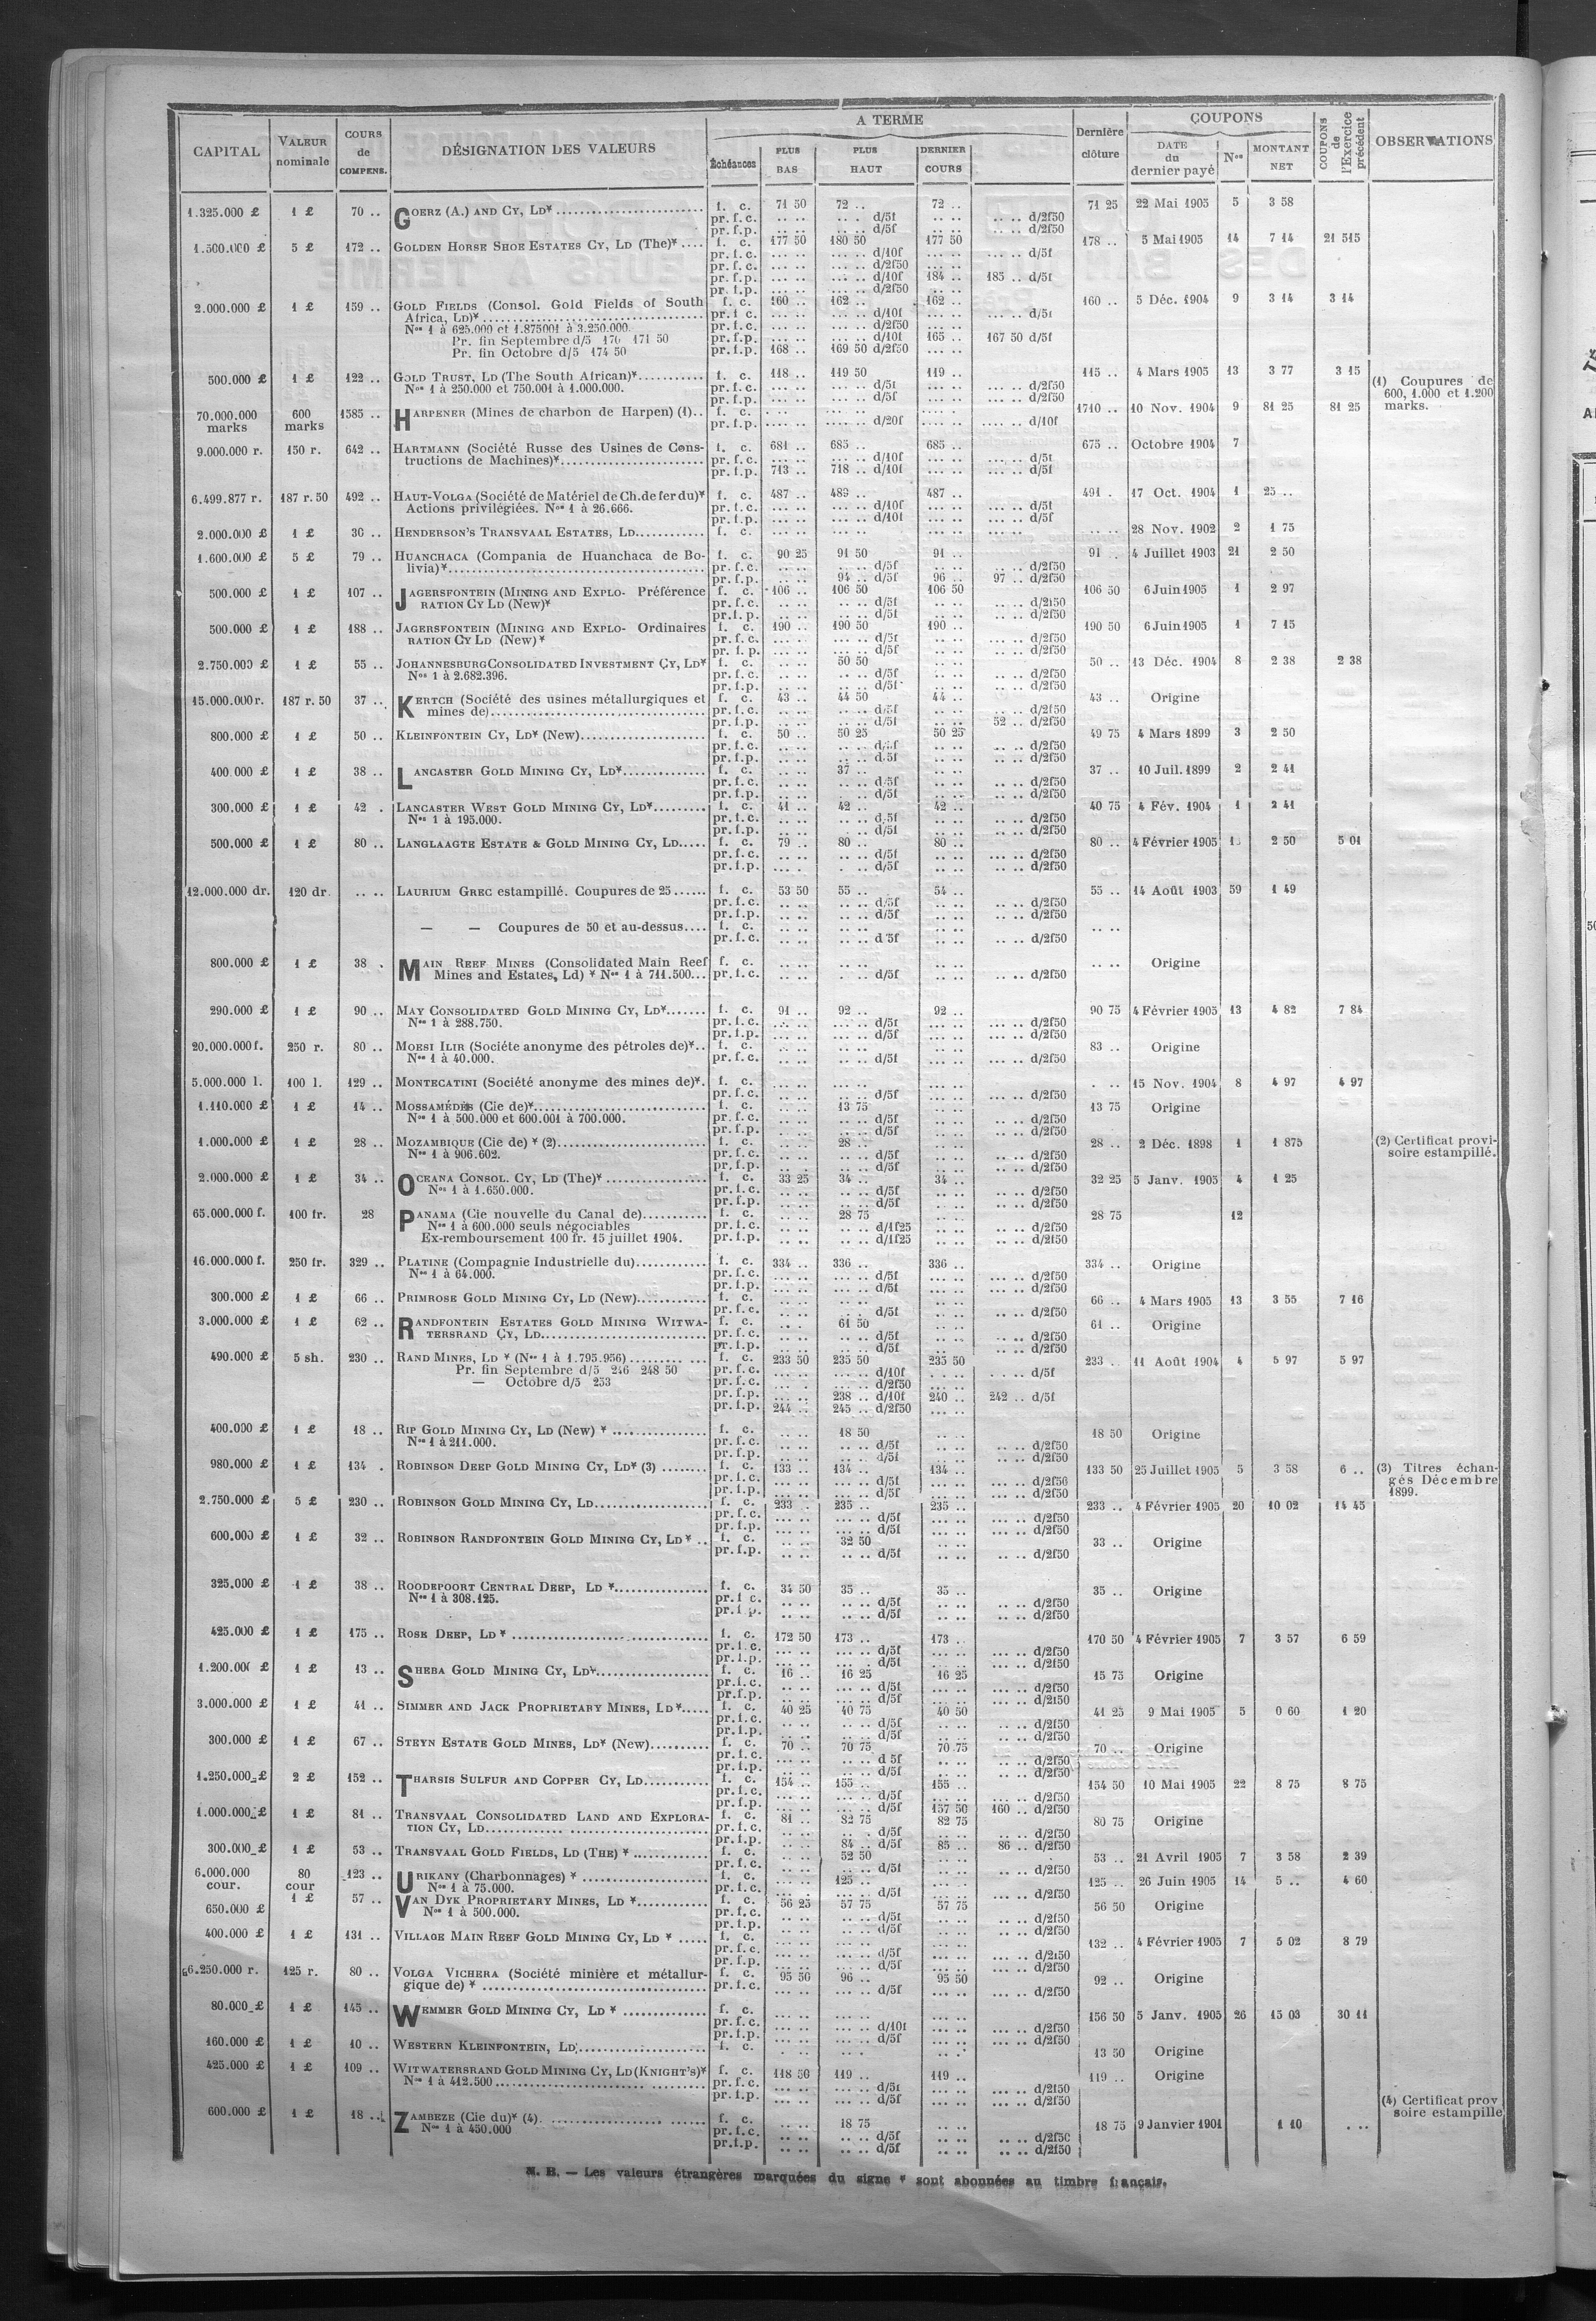 CAPITAL | VALEUR nominale | COURS de COMPENS. | DÉSIGNATION DES VALEURS | A TERME | Dernière clôture | COUPONS | COUPONS de l'Exercice précédent | OBSERVATIONS
Échéances | PLUS BAS | PLUS HAUT | DERNIER COURS | DATE du dernier payé | Nos | MONTANT NET
1.325.000 £ 1 £ 70 .. GOERZ (A.) AND CY, LD* f. c. 71 50 72 .. 72 .. 71 25 22 Mai 1905 5 3 58
pr. f. c. .. .. .. .. d/5f .. .. .. .. d/2f50
pr. f. p. .. .. .. .. d/5f .. .. .. .. d/2f50
1.500.000 £ 5 £ 172 .. GOLDEN HORSE SHOE ESTATES CY, LD (The)* .... f. c. 177 50 180 50 177 50 178 .. 5 Mai 1905 14 7 14 21 515
pr. f. c. ... .. ... .. d/10f ... .. ... .. d/5f
pr. f. c. ... .. ... .. d/2f50 ... ..
pr. f. p. ... .. ... .. d/10f 184 .. 185 .. d/5f
pr. f. p. ... .. ... .. d/2f50 ... ..
2.000.000 £ 1 £ 159 .. GOLD FIELDS (Consol. Gold Fields of South f. c. 160 .. 162 .. 162 .. 160 .. 5 Déc. 1904 9 3 14 3 14
Africa, LD)* pr. f. c. ... .. ... .. d/10f ... .. ... .. d/5f
Nos 1 à 625.000 et 1.875001 à 3.250.000. pr. f. c. ... .. ... .. d/2f50 ... ..
Pr. fin Septembre d/5 170 171 50 pr. f. p. ... .. ... .. d/10f 165 .. 167 50 d/5f
Pr. fin Octobre d/5 174 50 pr. f. p. 168 .. 169 50 d/2f50 ... ..
500.000 £ 1 £ 122 .. GOLD TRUST, LD (The South African)* f. c. 118 .. 119 50 119 .. 115 .. 4 Mars 1905 13 3 77 3 15
Nos 1 à 250.000 et 750.001 à 1.000.000. pr. f. c. ... .. ... .. d/5f ... .. ... .. d/2f50
pr. f. p. ... .. ... .. d/5f ... .. ... .. d/2f50
(1) Coupures de
600, 1.000 et 1.200
marks.
70.000.000 marks 600 marks 1585 .. HARPENER (Mines de charbon de Harpen) (1).. f. c. .... .. .... .. .... .. 1710 .. 10 Nov. 1904 9 81 25 81 25
pr. f. p. .... .. .... .. d/20f .... .. d/10f
9.000.000 r. 150 r. 642 .. HARTMANN (Société Russe des Usines de Cons- f. c. 681 .. 685 .. 685 .. 675 .. Octobre 1904 7
tructions de Machines)* pr. f. c. ... .. ... .. d/10f ... .. ... .. d/5f
pr. f. p. 713 .. 718 .. d/10f ... .. ... .. d/5f
6.499.877 r. 187 r. 50 492 .. HAUT-VOLGA (Société de Matériel de Ch. de fer du)* f. c. 487 .. 489 .. 487 .. 491 . 17 Oct. 1904 1 25 ..
Actions privilégiées. Nos 1 à 26.666. pr. f. c. ... .. ... .. d/10f ... .. ... .. d/5f
pr. f. p. ... .. ... .. d/10f ... .. ... .. d/5f
2.000.000 £ 1 £ 30 .. HENDERSON'S TRANSVAAL ESTATES, LD f. c. ... .. ... .. ... .. ... .. 28 Nov. 1902 2 1 75
1.600.000 £ 5 £ 79 .. HUANCHACA (Compania de Huanchaca de Bo- f. c. 90 25 91 50 91 .. 91 . 4 Juillet 1903 21 2 50
livia)* pr. f. c. .. .. .. .. d/5f .. .. .. .. d/2f50
pr. f. p. .. .. 94 .. d/5f 96 .. 97 .. d/2f50
500.000 £ 1 £ 107 .. JAGERSFONTEIN (MINING AND EXPLO- Préférence f. c. 106 .. 106 50 106 50 106 50 6 Juin 1905 1 2 97
RATION CY LD (New)* pr. f. c. .. .. .. .. d/5f .. .. .. .. d/2f50
pr. f. p. .. .. .. .. d/5f .. .. .. .. d/2f50
500.000 £ 1 £ 188 .. JAGERSFONTEIN (MINING AND EXPLO- Ordinaires f. c. 190 .. 190 50 190 .. 190 50 6 Juin 1905 1 7 15
RATION CY LD (New)* pr. f. c. ... .. ... .. d/5f ... .. ... .. d/2f50
pr. f. p. ... .. ... .. d/5f ... .. ... .. d/2f50
2.750.000 £ 1 £ 55 .. JOHANNESBURG CONSOLIDATED INVESTMENT CY, LD* f. c. .. .. 50 50 .. .. 50 .. 13 Déc. 1904 8 2 38 2 38
Nos 1 à 2.682.396. pr. f. c. .. .. .. .. d/5f .. .. .. .. d/2f50
pr. f. p. .. .. .. .. d/5f .. .. .. .. d/2f50
15.000.000 r. 187 r. 50 37 .. KERTCH (Société des usines métallurgiques et f. c. 43 .. 44 50 44 .. 43 .. Origine
mines de) pr. f. c. .. .. .. .. d/5f .. .. .. .. d/2f50
pr. f. p. .. .. .. .. d/5f .. .. 52 .. d/2f50
800.000 £ 1 £ 50 .. KLEINFONTEIN CY, LD* (New) f. c. 50 .. 50 25 50 25 49 75 4 Mars 1899 3 2 50
pr. f. c. .. .. .. .. d/5f .. .. .. .. d/2f50
pr. f. p. .. .. .. .. d/5f .. .. .. .. d/2f50
400.000 £ 1 £ 38 .. LANCASTER GOLD MINING CY, LD* f. c. .. .. 37 .. .. .. 37 .. 10 Juil. 1899 2 2 41
pr. f. c. .. .. .. .. d/5f .. .. .. .. d/2f50
pr. f. p. .. .. .. .. d/5f .. .. .. .. d/2f50
300.000 £ 1 £ 42 . LANCASTER WEST GOLD MINING CY, LD* f. c. 41 .. 42 .. 42 .. 40 75 4 Fév. 1904 1 2 41
Nos 1 à 195.000. pr. f. c. .. .. .. .. d/5f .. .. .. .. d/2f50
pr. f. p. .. .. .. .. d/5f .. .. .. .. d/2f50
500.000 £ 1 £ 80 .. LANGLAAGTE ESTATE & GOLD MINING CY, LD f. c. 79 .. 80 .. 80 .. 80 .. 4 Février 1905 2 50 5 01
pr. f. c. .. .. .. .. d/5f .. .. ... .. d/2f50
pr. f. p. .. .. .. .. d/5f .. .. ... .. d/2f50
12.000.000 dr. 120 dr. .. .. LAURIUM GREC estampillé. Coupures de 25 f. c. 53 50 55 .. 54 .. 55 .. 14 Août 1903 59 1 49
pr. f. c. .. .. .. .. d/5f .. .. .. .. d/2f50
pr. f. p. .. .. .. .. d/5f .. .. .. .. d/2f50
— — Coupures de 50 et au-dessus.... f. c. .. .. .. .. .. .. .. ..
pr. f. c. .. .. .. .. d/5f .. .. .. .. d/2f50
800.000 £ 1 £ 38 . MAIN REEF MINES (Consolidated Main Reef f. c. .. .. .. .. .. .. .. .. Origine
Mines and Estates, Ld) * Nos 1 à 711.500... pr. f. c. .. .. .. .. d/5f .. .. .. .. d/2f50
290.000 £ 1 £ 90 .. MAY CONSOLIDATED GOLD MINING CY, LD* f. c. 91 .. 92 .. 92 .. 90 75 4 Février 1905 13 4 82 7 84
Nos 1 à 288.750. pr. f. c. ... .. ... .. d/5f ... .. ... .. d/2f50
pr. f. p. ... .. ... .. d/5f ... .. ... .. d/2f50
20.000.000 f. 250 r. 80 .. MOESI ILIR (Sociéte anonyme des pétroles de)*.. f. c. .. .. .. .. .. .. 83 .. Origine
Nos 1 à 40.000. pr. f. c. .. .. .. .. d/5f .. .. ... .. d/2f50
5.000.000 l. 100 l. 129 .. MONTECATINI (Société anonyme des mines de)*. f. c. ... .. ... .. ... .. . .. 15 Nov. 1904 8 4 97 4 97
pr. f. c. ... .. ... .. d/5f ... .. ... .. d/2f50
1.110.000 £ 1 £ 14 .. MOSSAMÉDÈS (Cie de)* f. c. .. .. 13 75 .. .. 13 75 Origine
Nos 1 à 500.000 et 600.001 à 700.000. pr. f. c. .. .. .. .. d/5f .. .. .. .. d/2f50
pr. f. p. .. .. .. .. d/5f .. .. .. .. d/2f50
1.000.000 £ 1 £ 28 .. MOZAMBIQUE (Cie de) * (2) f. c. .. .. 28 .. .. .. 28 .. 2 Déc. 1898 1 1 875 (2) Certificat provi-
Nos 1 à 906.602. pr. f. c. .. .. .. .. d/5f .. .. .. .. d/2f50 soire estampillé.
pr. f. p. .. .. .. .. d/5f .. .. .. .. d/2f50
2.000.000 £ 1 £ 34 .. OCEANA CONSOL. CY, LD (The)* f. c. 33 25 34 .. 34 .. 32 25 5 Janv. 1905 4 1 25
Nos 1 à 1.650.000. pr. f. c. .. .. .. .. d/5f .. .. .. .. d/2f50
pr. f. p. .. .. .. .. d/5f .. .. .. .. d/2f50
65.000.000 f. 100 fr. 28 PANAMA (Cie nouvelle du Canal de) f. c. .. .. 28 75 .. .. 28 75 12
Nos 1 à 600.000 seuls négociables pr. f. c. .. .. .. .. d/1f25 .. .. .. .. d/2f50
Ex-remboursement 100 fr. 15 juillet 1904. pr. f. p. .. .. .. .. d/1f25 .. .. .. .. d/2f50
16.000.000 f. 250 fr. 329 .. PLATINE (Compagnie Industrielle du) f. c. 334 .. 336 .. 336 .. 334 .. Origine
Nos 1 à 64.000. pr. f. c. ... .. ... .. d/5f ... .. ... .. d/2f50
pr. f. p. ... .. ... .. d/5f ... .. ... .. d/2f50
300.000 £ 1 £ 66 .. PRIMROSE GOLD MINING CY, LD (New) f. c. .. .. .. .. .. .. 66 .. 4 Mars 1905 13 3 55 7 16
pr. f. c. .. .. .. .. d/5f .. .. ... .. d/2f50
3.000.000 £ 1 £ 62 .. RANDFONTEIN ESTATES GOLD MINING WITWA- f. c. .. .. 61 50 .. .. 61 .. Origine
TERSRAND CY, LD pr. f. c. .. .. .. .. d/5f .. .. .. .. d/2f50
pr. f. p. .. .. .. .. d/5f .. .. .. .. d/2f50
490.000 £ 5 sh. 230 .. RAND MINES, LD * (Nos 1 à 1.795.956) f. c. 233 50 235 50 235 50 233 .. 11 Août 1904 4 5 97 5 97
Pr. fin Septembre d/5 246 248 50 pr. f. c. ... .. ... .. d/10f ... .. ... .. d/5f
— Octobre d/5 253 pr. f. c. ... .. ... .. d/2f50 ... ..
pr. f. p. ... .. 238 .. d/10f 240 .. 242 .. d/5f
pr. f. p. 244 .. 245 .. d/2f50 ... ..
400.000 £ 1 £ 18 .. RIP GOLD MINING CY, LD (New) * f. c. .. .. 18 50 .. .. 18 50 Origine
Nos 1 à 211.000. pr. f. c. .. .. .. .. d/5f .. .. .. .. d/2f50
pr. f. p. .. .. .. .. d/5f .. .. .. .. d/2f50
980.000 £ 1 £ 134 . ROBINSON DEEP GOLD MINING CY, LD* (3) f. c. 133 .. 134 .. 134 .. 133 50 25 Juillet 1905 5 3 58 6 .. (3) Titres échan-
pr. f. c. ... .. ... .. d/5f ... .. ... .. d/2f50 gés Décembre
pr. f. p. ... .. ... .. d/5f ... .. ... .. d/2f50 1899.
2.750.000 £ 5 £ 230 .. ROBINSON GOLD MINING CY, LD f. c. 233 . 235 .. 235 .. 233 .. 4 Février 1905 20 10 02 14 45
pr. f. c. ... .. ... .. d/5f ... .. ... .. d/2f50
pr. f. p. ... .. ... .. d/5f ... .. ... .. d/2f50
600.000 £ 1 £ 32 .. ROBINSON RANDFONTEIN GOLD MINING CY, LD* .. f. c. .. .. 32 50 .. .. 33 .. Origine
pr. f. p. .. .. .. .. d/5f .. .. .. .. d/2f50
325.000 £ 1 £ 38 .. ROODEPOORT CENTRAL DEEP, LD * f. c. 34 50 35 .. 35 .. 35 .. Origine
Nos 1 à 308.125. pr. f. c. .. .. .. .. d/5f .. .. .. .. d/2f50
pr. f. p. .. .. .. .. d/5f .. .. .. .. d/2f50
425.000 £ 1 £ 175 .. ROSE DEEP, LD * f. c. 172 50 173 .. 173 .. 170 50 4 Février 1905 7 3 57 6 59
pr. f. c. ... .. ... .. d/5f ... .. ... .. d/2f50
pr. f. p. ... .. ... .. d/5f ... .. ... .. d/2f50
1.200.000 £ 1 £ 13 .. SHEBA GOLD MINING CY, LD* f. c. 16 .. 16 25 16 25 15 75 Origine
pr. f. c. .. .. .. .. d/5f .. .. .. .. d/2f50
pr. f. p. .. .. .. .. d/5f .. .. .. .. d/2f50
3.000.000 £ 1 £ 41 .. SIMMER AND JACK PROPRIETARY MINES, LD* f. c. 40 25 40 75 40 50 41 25 9 Mai 1905 5 0 60 1 20
pr. f. c. .. .. .. .. d/5f .. .. .. .. d/2f50
pr. f. p. .. .. .. .. d/5f .. .. .. .. d/2f50
300.000 £ 1 £ 67 .. STEYN ESTATE GOLD MINES, LD* (New) f. c. 70 .. 70 75 70 75 70 .. Origine
pr. f. c. .. .. .. .. d/5f .. .. .. .. d/2f50
pr. f. p. .. .. .. .. d/5f .. .. .. .. d/2f50
1.250.000 £ 2 £ 152 .. THARSIS SULFUR AND COPPER CY, LD f. c. 154 .. 155 .. 155 .. 154 50 10 Mai 1905 22 8 75 8 75
pr. f. c. ... .. ... .. d/5f ... .. ... .. d/2f50
pr. f. p. ... .. ... .. d/5f 157 50 160 .. d/2f50
1.000.000 £ 1 £ 81 .. TRANSVAAL CONSOLIDATED LAND AND EXPLORA- f. c. 81 .. 82 75 82 75 80 75 Origine
TION CY, LD pr. f. c. .. .. .. .. d/5f .. .. .. .. d/2f50
pr. f. p. .. .. 84 .. d/5f 85 .. 86 .. d/2f50
300.000 £ 1 £ 53 .. TRANSVAAL GOLD FIELDS, LD (THE) * f. c. .. .. 52 50 .. .. 53 .. 21 Avril 1905 7 3 58 2 39
pr. f. c. .. .. .. .. d/5f .. .. .. .. d/2f50
6.000.000 cour. 80 cour 123 .. URIKANY (Charbonnages) * f. c. ... .. 125 .. ... .. 125 .. 26 Juin 1905 14 5 .. 4 60
Nos 1 à 75.000. pr. f. c. ... .. ... .. d/5f ... .. ... .. d/2f50
650.000 £ 1 £ 57 .. VAN DYK PROPRIETARY MINES, LD * f. c. 56 25 57 75 57 75 56 50 Origine
Nos 1 à 500.000. pr. f. c. .. .. .. .. d/5f .. .. .. .. d/2f50
pr. f. p. .. .. .. .. d/5f .. .. .. .. d/2f50
400.000 £ 1 £ 131 .. VILLAGE MAIN REEF GOLD MINING CY, LD * f. c. ... .. ... .. ... .. 132 .. 4 Février 1905 7 5 02 8 79
pr. f. c. ... .. ... .. d/5f ... .. ... .. d/2f50
pr. f. p. ... .. ... .. d/5f ... .. ... .. d/2f50
6.250.000 r. 125 r. 80 .. VOLGA VICHERA (Société minière et métallur- f. c. 95 50 96 .. 95 50 92 .. Origine
gique de) * pr. f. c. ... .. ... .. d/5f ... .. ... .. d/2f50
80.000 £ 1 £ 145 .. WEMMER GOLD MINING CY, LD * f. c. ... .. ... .. ... .. 156 50 5 Janv. 1905 26 15 03 30 11
pr. f. c. ... .. ... .. d/10f ... .. ... .. d/2f50
pr. f. p. ... .. ... .. d/5f ... .. ... .. d/2f50
160.000 £ 1 £ 10 .. WESTERN KLEINFONTEIN, LD f. c. .. .. .. .. .. .. 13 50 Origine
425.000 £ 1 £ 109 .. WITWATERSRAND GOLD MINING CY, LD (KNIGHT'S)* f. c. 118 50 119 .. 119 .. 119 .. Origine
Nos 1 à 412.500 pr. f. c. ... .. ... .. d/5f ... .. ... .. d/2f50
pr. f. p. ... .. ... .. d/5f ... .. ... .. d/2f50
(4) Certificat prov
soire estampille
600.000 £ 1 £ 18 .. ZAMBEZE (Cie du)* (4) f. c. .. .. 18 75 .. .. 18 75 9 Janvier 1901 1 10 . ..
Nos 1 à 450.000 pr. f. c. .. .. .. .. d/5f .. .. .. .. d/2f50
pr. f. p. .. .. .. .. d/5f .. .. .. .. d/2f50
N. B. — Les valeurs étrangères marquées du signe * sont abonnées au timbre français.